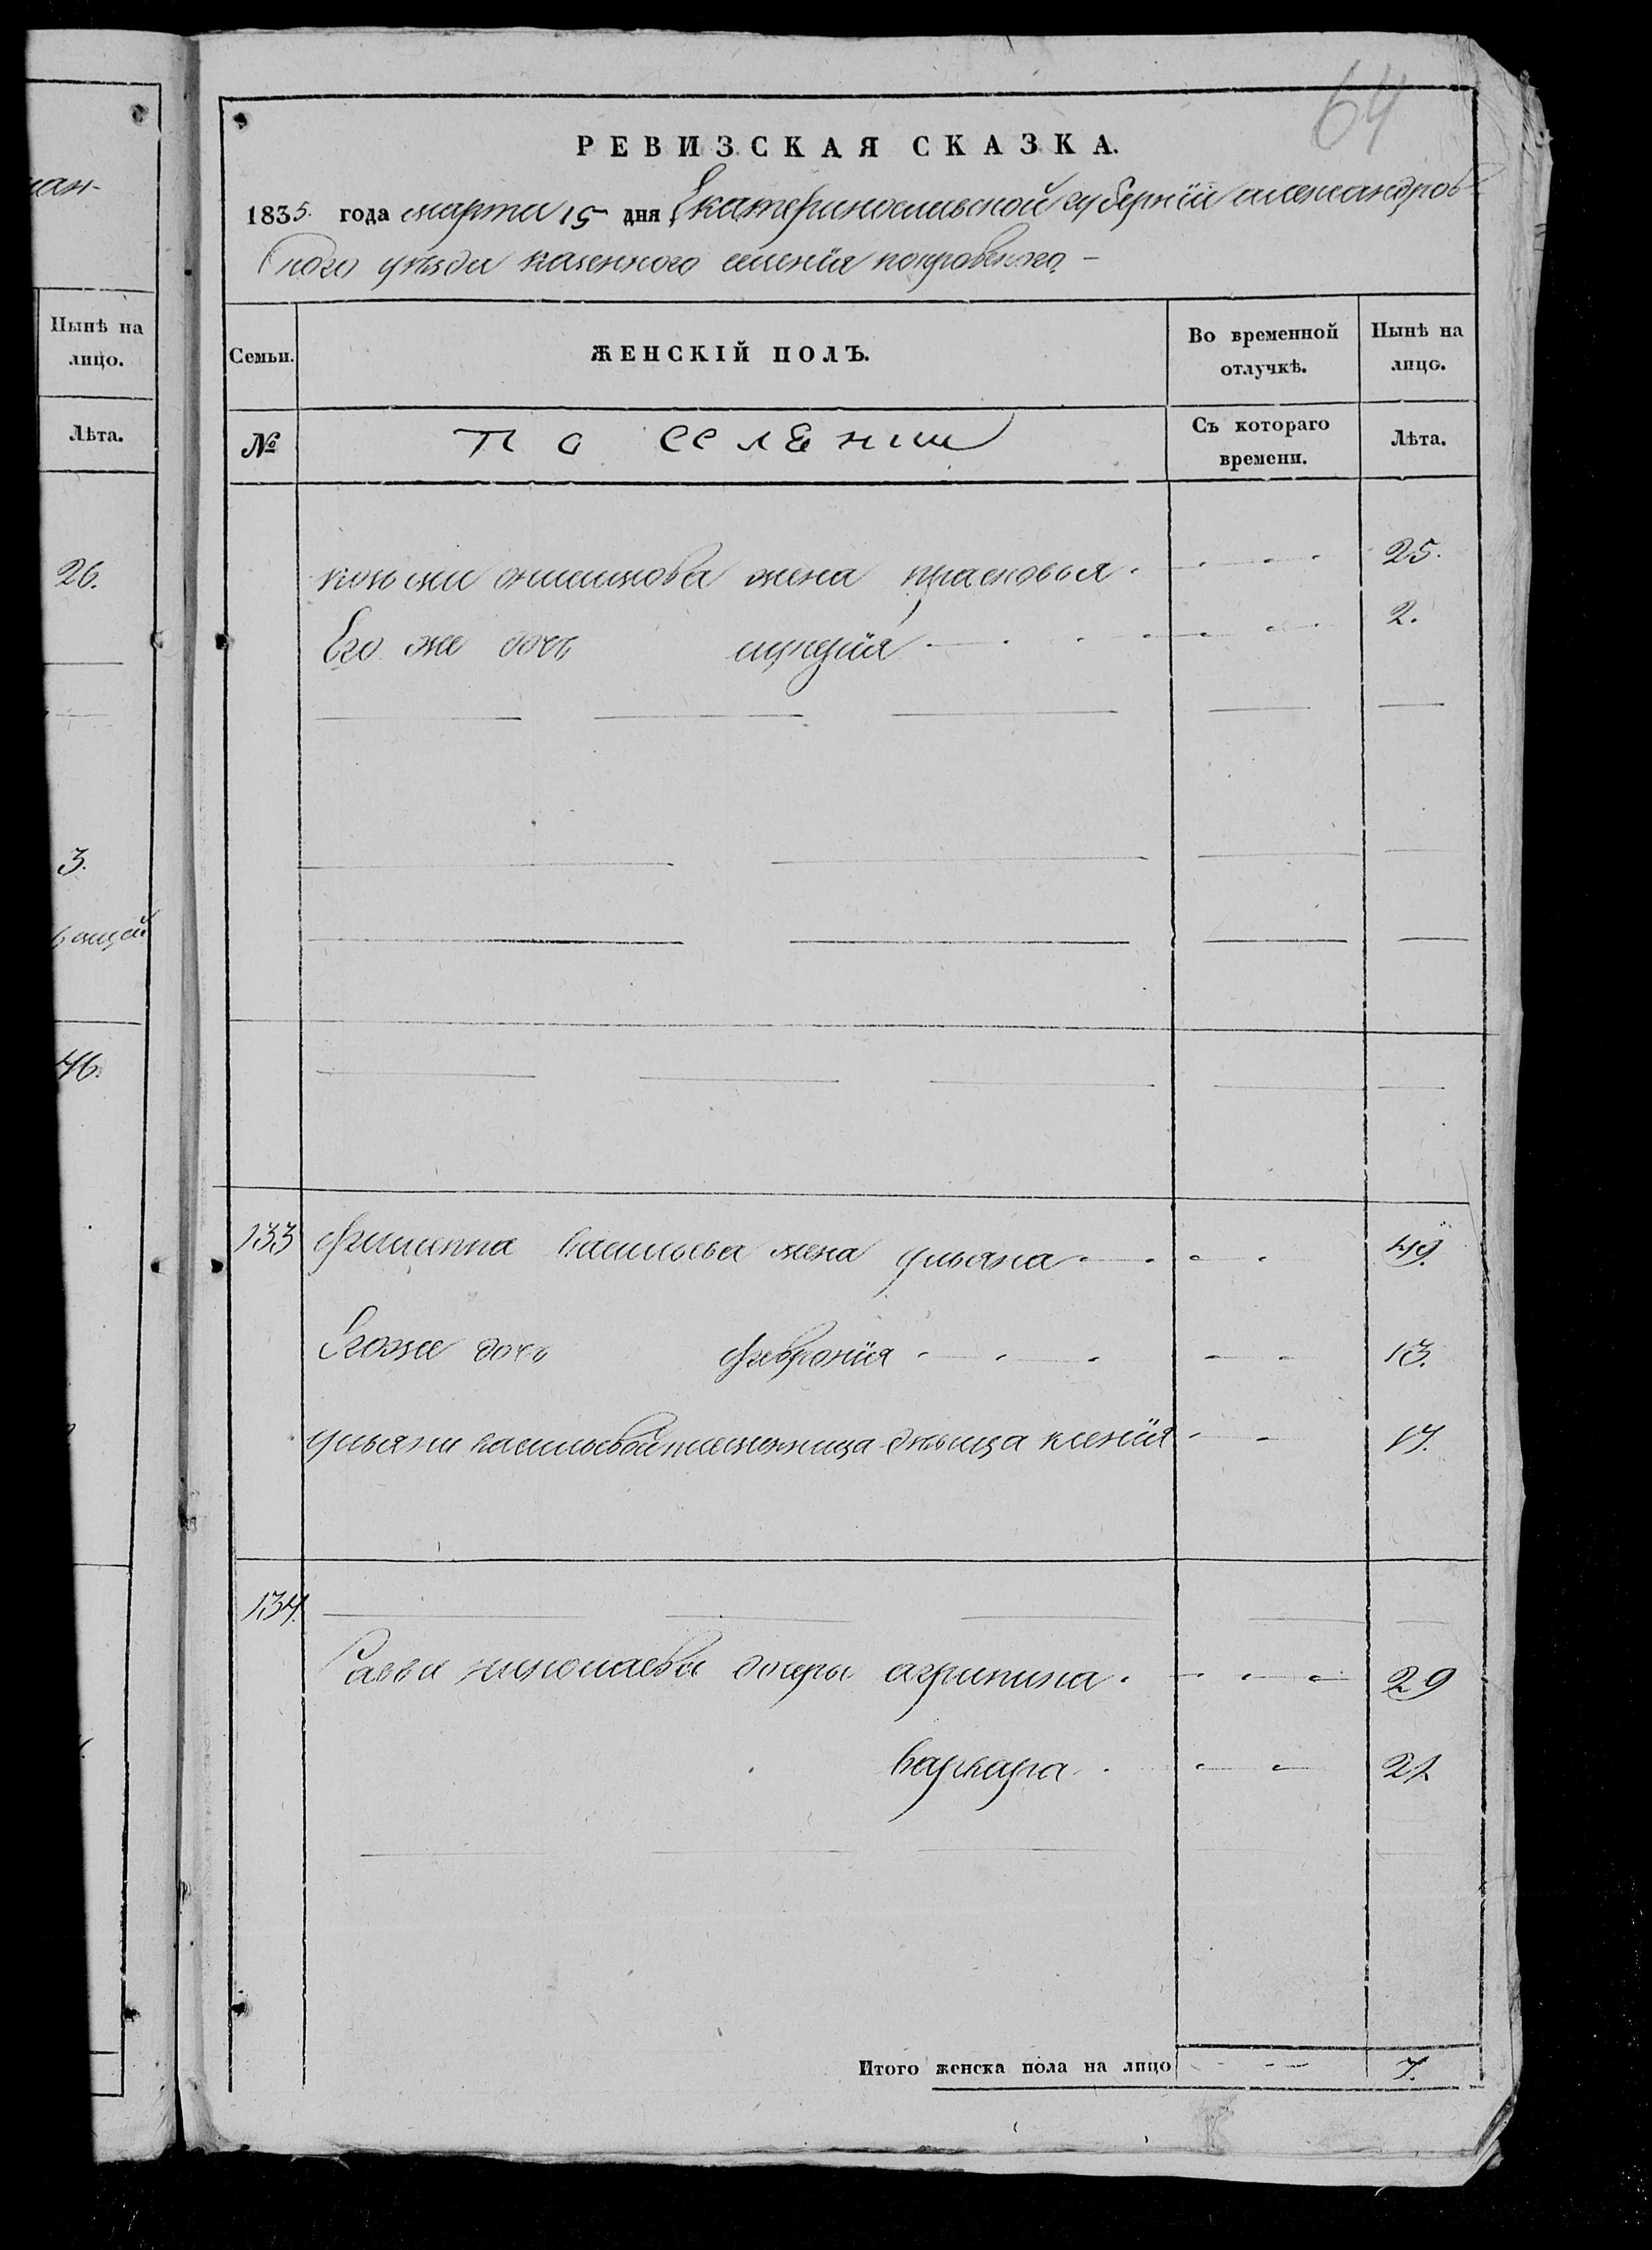 64
РЕВИЗСКАЯ СКАЗКА.
1835. года марта 15 дня Екатеринославской губернïи александров-
скаго уѣзда казеннаго селенïя покровскаго
Нынѣ на лицо.
Лѣта.
26.
3.
46.
Семьи.
ЖЕНСКІЙ ПОЛЪ.
Во временной отлучкѣ.
Нынѣ на лицо.
№
По селению
Съ котораго времени.
Лѣта.
козьми онисимова жена прасковья 25.
Его же дочь 2.
133 Филиппа васильева жена ульяна 49.
Егоже дочь Февронïя 13.
ульяни васильевой племянница дѣвица ксенïя 17.
134.
Савви николаева дочери агрипина 29
варвара 21
Итого женска пола на лицо 7.